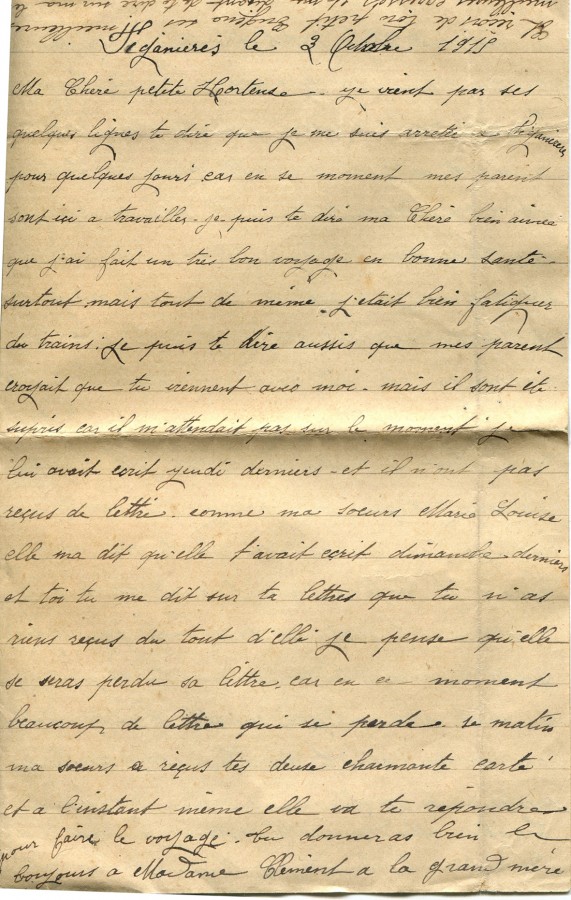 le 3 Octobre 1918
Ma Chère petite Hortense. je vient par ses
quelques lignes te dire que je me suis arretté a
pour quelques jours car en se moment mes parent
sont ici a travailler. je puis te dire ma Chère bien aimée
que j'ai fait un très bon voyage en bonne santé
surtout mais tout de même j'etait bien fatiguer
du trains. je puis te dire aussis que mes parent
croyait que tu viennent avec moi. mais il sont été
supris car il m'attendait pas sur le moment je
lui avait ecrit jeudi derniers et il n'ont pas
reçus de lettre. comme ma soeurs Marie Louise
elle ma dit qu'elle t'avait ecrit dimanche derniers
et toi tu me dit sur ta lettres que tu n'as
riens reçus du tout d'elle je pense qu'elle
se seras perdu sa lettre. car en ce moment
beaucoup de lettre qui se perde. se matin
ma soeurs a reçus tes deuse charmante carte
et a l'instant même elle va te répondre
pour faire le voyage. tu donneras bien le
toujours a Madame Clément a la grand mère